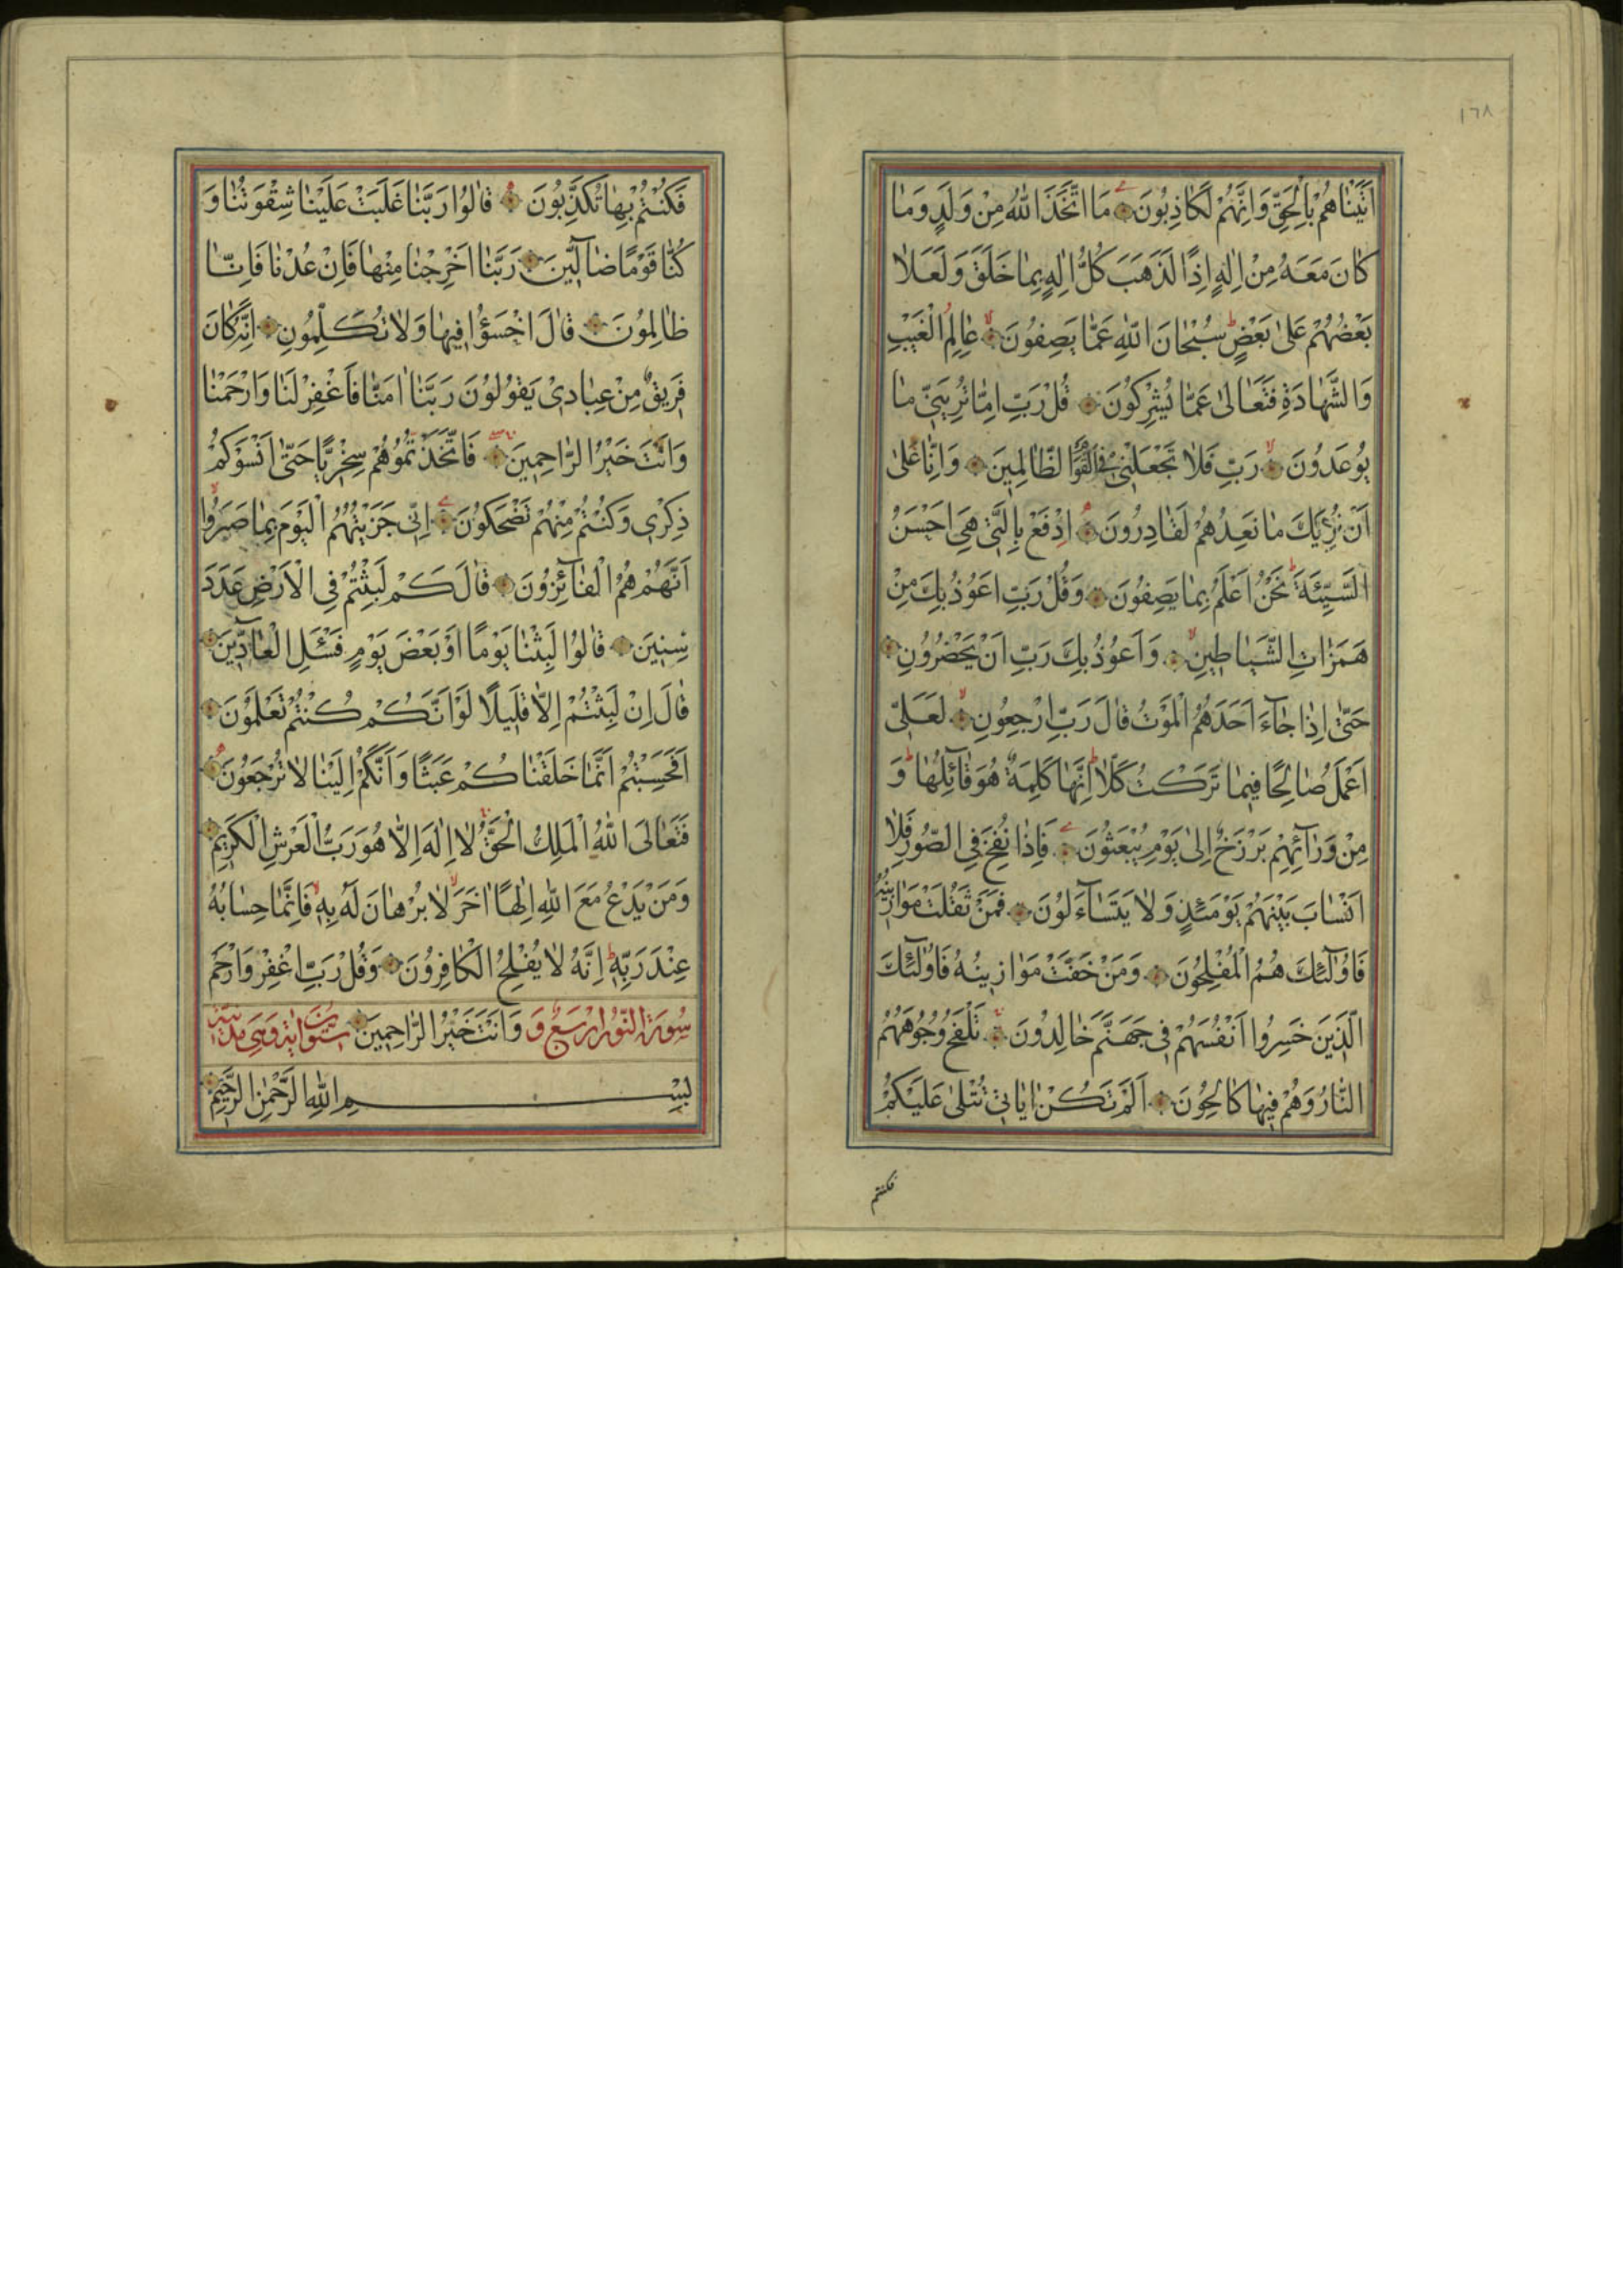 ١٦٨
اَتَيْنَاهُمْ بِالْحَقِّ وَاِنَّهُمْ لَكَاذِبُونَ مَا اتَّخَذَ اللّٰهُ مِنْ وَلَدٍ وَمَا
كَانَ مَعَهُ مِنْ اِلٰهٍ اِذًا لَذَهَبَ كُلُّ اِلٰهٍ بِمَا خَلَقَ وَلَعَلَا
بَعْضُهُمْ عَلٰى بَعْضٍ ط سُبْحَانَ اللّٰهِ عَمَّا يَصِفُونَ لا عَالِمِ الْغَيْبِ
وَالشَّهَادَةِ فَتَعَالٰى عَمَّا يُشْرِكُونَ قُلْ رَبِّ اِمَّا تُرِيَنِّي مَا
يُوعَدُونَ لا رَبِّ فَلَا تَجْعَلْنِي فِي الْقَوْمِ الظَّالِمِينَ وَاِنَّا عَلٰى
اَنْ نُرِيَكَ مَا نَعِدُهُمْ لَقَادِرُونَ اِدْفَعْ بِالَّتِي هِيَ اَحْسَنُ
السَّيِّئَةَ ط نَحْنُ اَعْلَمُ بِمَا يَصِفُونَ وَقُلْ رَبِّ اَعُوذُ بِكَ مِنْ
هَمَزَاتِ الشَّيَاطِينِ لا وَاَعُوذُ بِكَ رَبِّ اَنْ يَحْضُرُونِ
حَتّٰى اِذَا جَاءَ اَحَدَهُمُ الْمَوْتُ قَالَ رَبِّ ارْجِعُونِ لا لَعَلِّي
اَعْمَلُ صَالِحًا فِيمَا تَرَكْتُ كَلَّا ط اِنَّهَا كَلِمَةٌ هُوَ قَائِلُهَا ط وَ
مِنْ وَرَائِهِمْ بَرْزَخٌ اِلٰى يَوْمِ يُبْعَثُونَ فَاِذَا نُفِخَ فِي الصُّورِ فَلَا
اَنْسَابَ بَيْنَهُمْ يَوْمَئِذٍ وَلَا يَتَسَاءَلُونَ فَمَنْ ثَقُلَتْ مَوَازِينُهُ
فَاُولٰئِكَ هُمُ الْمُفْلِحُونَ وَمَنْ خَفَّتْ مَوَازِينُهُ فَاُولٰئِكَ
الَّذِينَ خَسِرُوا اَنْفُسَهُمْ فِي جَهَنَّمَ خَالِدُونَ تَلْفَحُ وُجُوهَهُمُ
النَّارُ وَهُمْ فِيهَا كَالِحُونَ اَلَمْ تَكُنْ اٰيَاتِي تُتْلٰى عَلَيْكُمْ
فكنتم
فَكُنْتُمْ بِهَا تُكَذِّبُونَ قَالُوا رَبَّنَا غَلَبَتْ عَلَيْنَا شِقْوَتُنَا وَ
كُنَّا قَوْمًا ضَالِّينَ رَبَّنَا اَخْرِجْنَا مِنْهَا فَاِنْ عُدْنَا فَاِنَّا
ظَالِمُونَ قَالَ اخْسَؤُا فِيهَا وَلَا تُكَلِّمُونِ اِنَّهُ كَانَ
فَرِيقٌ مِنْ عِبَادِي يَقُولُونَ رَبَّنَا اٰمَنَّا فَاغْفِرْ لَنَا وَارْحَمْنَا
وَاَنْتَ خَيْرُ الرَّاحِمِينَ فَاتَّخَذْتُمُوهُمْ سِخْرِيًّا حَتّٰى اَنْسَوْكُمْ
ذِكْرِي وَكُنْتُمْ مِنْهُمْ تَضْحَكُونَ اِنِّي جَزَيْتُهُمُ الْيَوْمَ بِمَا صَبَرُوا لا
اَنَّهُمْ هُمُ الْفَائِزُونَ قَالَ كَمْ لَبِثْتُمْ فِي الْاَرْضِ عَدَدَ
سِنِينَ قَالُوا لَبِثْنَا يَوْمًا اَوْ بَعْضَ يَوْمٍ فَسْئَلِ الْعَادِّينَ
قَالَ اِنْ لَبِثْتُمْ اِلَّا قَلِيلًا لَوْ اَنَّكُمْ كُنْتُمْ تَعْلَمُونَ
اَفَحَسِبْتُمْ اَنَّمَا خَلَقْنَاكُمْ عَبَثًا وَاَنَّكُمْ اِلَيْنَا لَا تُرْجَعُونَ
فَتَعَالَى اللّٰهُ الْمَلِكُ الْحَقُّ لَا اِلٰهَ اِلَّا هُوَ رَبُّ الْعَرْشِ الْكَرِيمِ
وَمَنْ يَدْعُ مَعَ اللّٰهِ اِلٰهًا اٰخَرَ لا لَا بُرْهَانَ لَهُ بِهِ لا فَاِنَّمَا حِسَابُهُ
عِنْدَ رَبِّهِ ط اِنَّهُ لَا يُفْلِحُ الْكَافِرُونَ وَقُلْ رَبِّ اغْفِرْ وَارْحَمْ
وَاَنْتَ خَيْرُ الرَّاحِمِينَ
سُورَةُ النُّورِ اَرْبَعٌ وَ سِتُّونَ اٰيَةً وَهِيَ مَدَنِيَّةٌ
بِسْمِ اللّٰهِ الرَّحْمٰنِ الرَّحِيمِ